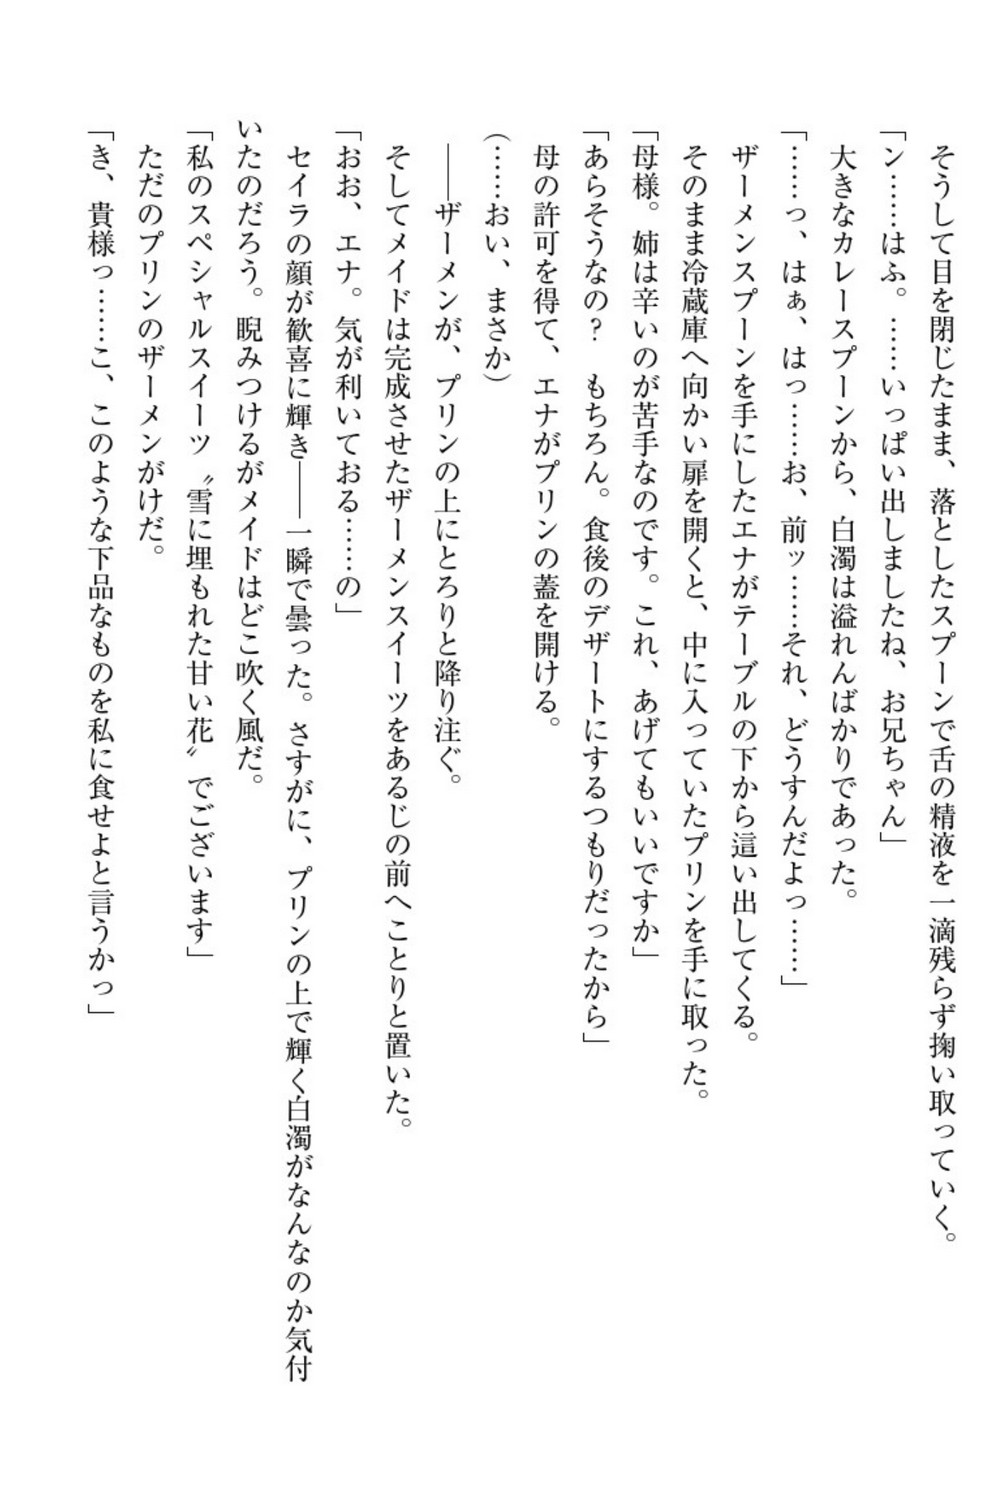 そうして目を閉じたまま、落としたスプーンで舌の精液を一滴残らず掬い取っていく。
「ン……はふ。……いっぱい出しましたね、お兄ちゃん」
大きなカレースプーンから、白濁は溢れんばかりであった。
「……っ、はぁ、はっ……お、前ッ……それ、どうすんだよっ……」
ザーメンスプーンを手にしたエナがテーブルの下から這い出してくる。
そのまま冷蔵庫へ向かい扉を開くと、中に入っていたプリンを手に取った。
「母様。姉は辛いのが苦手なのです。これ、あげてもいいですか」
「あらそうなの？　もちろん。食後のデザートにするつもりだったから」
母の許可を得て、エナがプリンの蓋を開ける。
（……おい、まさか）
――ザーメンが、プリンの上にとろりと降り注ぐ。
そしてメイドは完成させたザーメンスイーツをあるじの前へことりと置いた。
「おお、エナ。気が利いておる……の」
セイラの顔が歓喜に輝き――一瞬で曇った。さすがに、プリンの上で輝く白濁がなんなのか気付
いたのだろう。睨みつけるがメイドはどこ吹く風だ。
「私のスペシャルスイーツ〝雪に埋もれた甘い花〟でございます」
ただのプリンのザーメンがけだ。
「き、貴様っ……こ、このような下品なものを私に食せよと言うかっ」